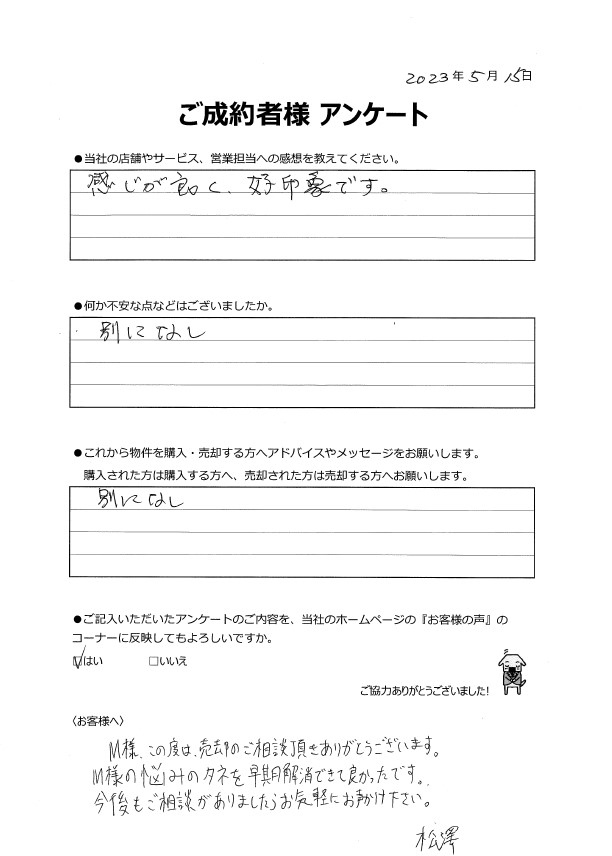 2023年5月15日
ご成約者様 アンケート
●当社の店舗やサービス、営業担当への感想を教えてください。
感じが良く、好印象です。
●何か不安な点などはございましたか。
別になし
●これから物件を購入・売却する方へアドバイスやメッセージをお願いします。
購入された方は購入する方へ、売却された方は売却する方へお願いします。
別になし
●ご記入いただいたアンケートのご内容を、当社のホームページの『お客様の声』の
コーナーに反映してもよろしいですか。
☑はい □いいえ
ご協力ありがとうございました!
〈お客様へ〉
M様、この度は、売却のご相談頂きありがとうございます。
M様の悩みのタネを早期解消できて良かったです。
今後もご相談がありましたらお気軽にお声かけ下さい。
松澤